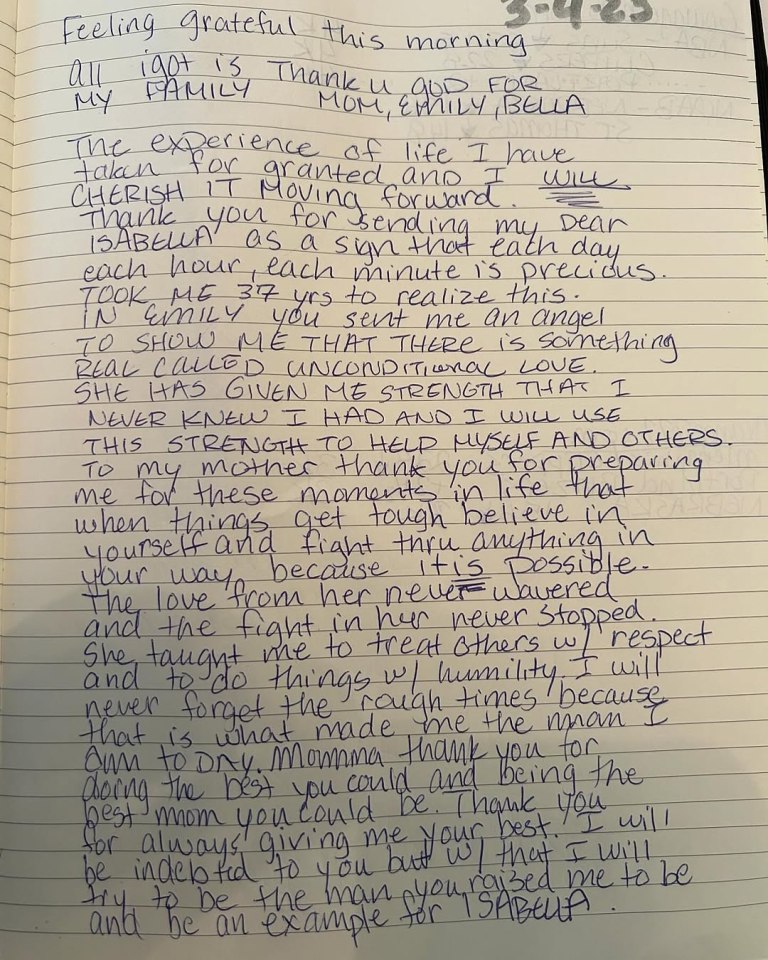 3-4-23
Feeling grateful this morning
all igot is Thank u GOD FOR
MY FAMILY MOM, EMILY, BELLA
The experience of life I have
taken for granted and I WILL
CHERISH IT Moving forward.
Thank you for sending my Dear
ISABELLA as a sign that each day
each hour, each minute is precious.
TOOK ME 37 yrs to realize this.
IN EMILY you sent me an angel
TO SHOW ME THAT THERE is something
REAL CALLED UNCONDITIONAL LOVE.
SHE HAS GIVEN ME STRENGTH THAT I
NEVER KNEW I HAD AND I WILL USE
THIS STRENGTH TO HELP MYSELF AND OTHERS.
To my mother thank you for preparing
me for these moments in life that
when things get tough believe in
yourself and fight thru anything in
your way, because it is possible.
The love from her never wavered
and the fight in her never stopped.
She taught me to treat others w/ respect
and to do things w/ humility. I will
never forget the rough times because
that is what made me the man I
am TO DAY. Momma thank you for
doing the best you could and being the
best mom you could be. Thank you
for always giving me your best. I will
be indebted to you but w/ that I will
try to be the man you raised me to be
and be an example for ISABELLA.